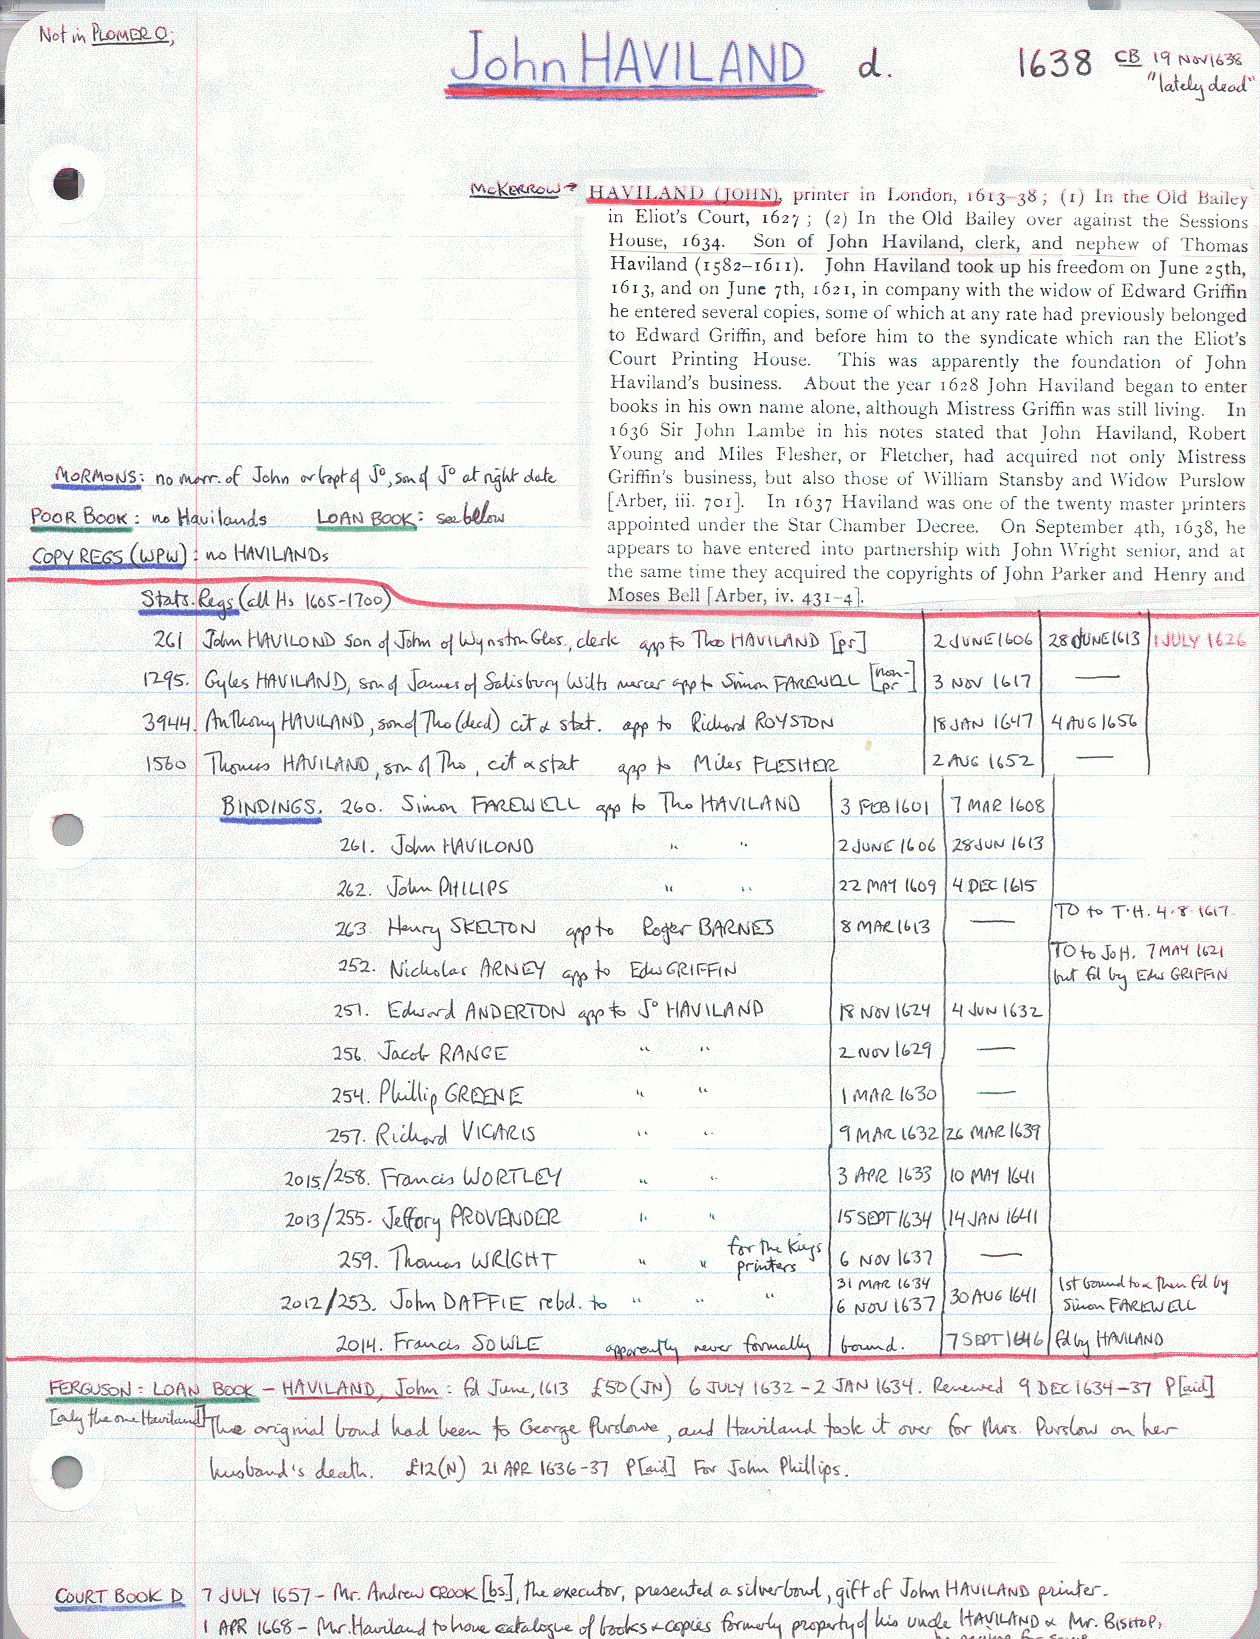 Not in PLOMER O;
John HAVILAND d. 1638 CB 19 NOV 1638
"lately dead"
McKERROW → HAVILAND (JOHN), printer in London, 1613–38; (1) In the Old Bailey
in Eliot's Court, 1627; (2) In the Old Bailey over against the Sessions
House, 1634. Son of John Haviland, clerk, and nephew of Thomas
Haviland (1582–1611). John Haviland took up his freedom on June 25th,
1613, and on June 7th, 1621, in company with the widow of Edward Griffin
he entered several copies, some of which at any rate had previously belonged
to Edward Griffin, and before him to the syndicate which ran the Eliot's
Court Printing House. This was apparently the foundation of John
Haviland's business. About the year 1628 John Haviland began to enter
books in his own name alone, although Mistress Griffin was still living. In
1636 Sir John Lambe in his notes stated that John Haviland, Robert
Young and Miles Flesher, or Fletcher, had acquired not only Mistress
Griffin's business, but also those of William Stansby and Widow Purslow
[Arber, iii. 701]. In 1637 Haviland was one of the twenty master printers
appointed under the Star Chamber Decree. On September 4th, 1638, he
appears to have entered into partnership with John Wright senior, and at
the same time they acquired the copyrights of John Parker and Henry and
Moses Bell [Arber, iv. 431–4].
MORMONS: no marr. of John or bapt of Jo, son of Jo at right date
POOR BOOK: no Havilands LOAN BOOK: see below
COPY REGS (WPW): no HAVILANDs
Stats. Regs (all Hs 1605-1700)
261 John HAVILOND son of John of Wynston Glos., clerk app to Tho HAVILAND [pr] 2 JUNE 1606 28 JUNE 1613 1 JULY 1626
1295. Gyles HAVILAND, son of James of Salisbury Wilts mercer app to Simon FAREWELL [non-pr] 3 NOV 1617 —
3944. Anthony HAVILAND, son of Tho (decd) cit & stat. app to Richard ROYSTON 18 JAN 1647 4 AUG 1656
1560 Thomas HAVILAND, son of Tho, cit & stat app to Miles FLESHER 2 AUG 1652 —
BINDINGS. 260. Simon FAREWELL app to Tho HAVILAND 3 FEB 1601 7 MAR 1608
261. John HAVILOND " " 2 JUNE 1606 28 JUN 1613
262. John PHILIPS " " 22 MAY 1609 4 DEC 1615
263. Henry SKELTON app to Roger BARNES 8 MAR 1613 — TO to T.H. 4.8.1617
252. Nicholas ARNEY app to Edw GRIFFIN TO to Jo H. 7 MAY 1621
but fd by Edw GRIFFIN
251. Edward ANDERTON app to Jo HAVILAND 18 NOV 1624 4 JUN 1632
256. Jacob RANGE " " 2 NOV 1629 —
254. Phillip GREENE " " 1 MAR 1630 —
257. Richard VICARIS " " 9 MAR 1632 26 MAR 1639
2015/258. Francis WORTLEY " " 3 APR 1633 10 MAY 1641
2013/255. Jeffory PROVENDER " " 15 SEPT 1634 14 JAN 1641
259. Thomas WRIGHT " " for the Kings printers 6 NOV 1637 —
2012/253. John DAFFIE rebd. to " " " 31 MAR 1634 6 NOV 1637 30 AUG 1641 1st bound to & then fd by Simon FAREWELL
2014. Francis SOWLE apparently never formally bound. 7 SEPT 1646 fd by HAVILAND
FERGUSON: LOAN BOOK – HAVILAND, John: fd June, 1613 £50 (JN) 6 JULY 1632 – 2 JAN 1634. Renewed 9 DEC 1634-37 P[aid]
[only the one Haviland] The original bond had been to George Purslowe, and Haviland took it over for Mrs. Purslow on her
husband's death. £12 (N) 21 APR 1636-37 P[aid] For John Phillips.
COURT BOOK D 7 JULY 1657 – Mr. Andrew CROOK [bs], the executor, presented a silver bowl, gift of John HAVILAND printer.
1 APR 1668 – Mr. Haviland to have catalogue of books & copies formerly property of his uncle HAVILAND & Mr. BISHOP,